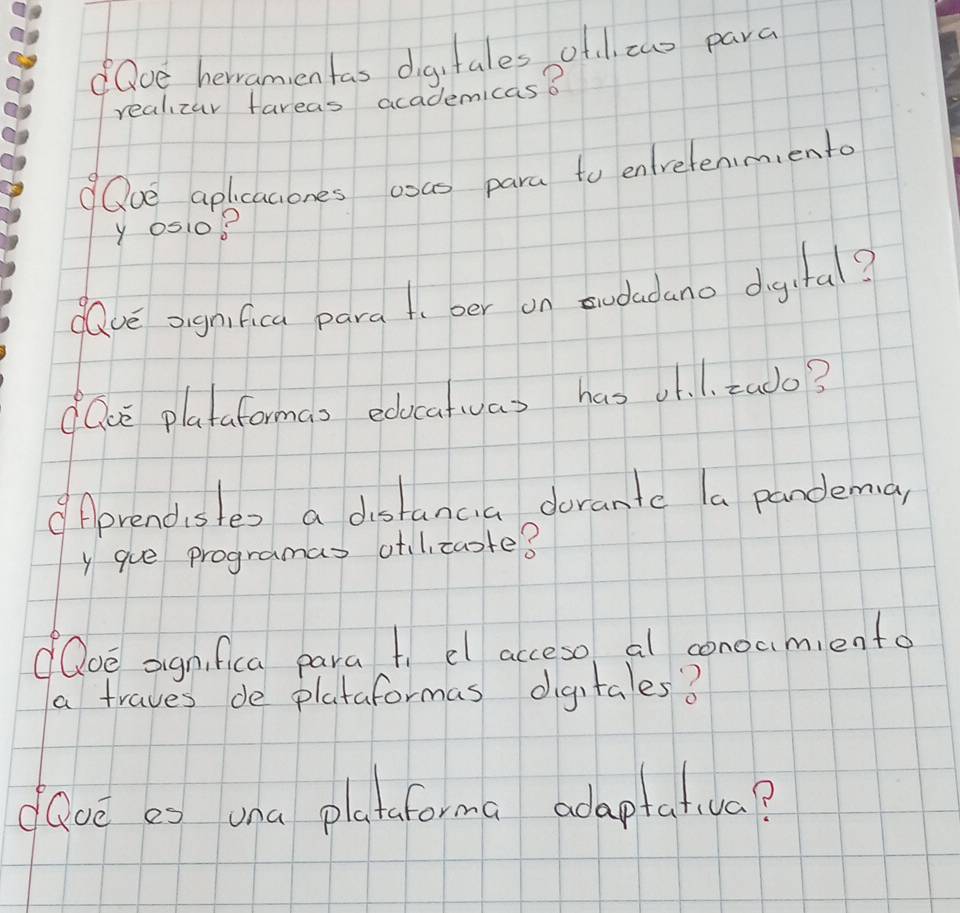 ¿Qué herramientas digitales utilizas para
realizar tareas academicas?
¿Qué aplicaciones usas para tu entretenimiento
y osio?
¿Qué significa para ti ser un ciudadano digital?
¿Qué plataformas educativas has utilizado?
¿Aprendistes a distancia durante la pandemia,
y que programas utilizaste?
¿Qué significa para ti el acceso al conocimiento
a traves de plataformas digitales?
¿Qué es una plataforma adaptativa?